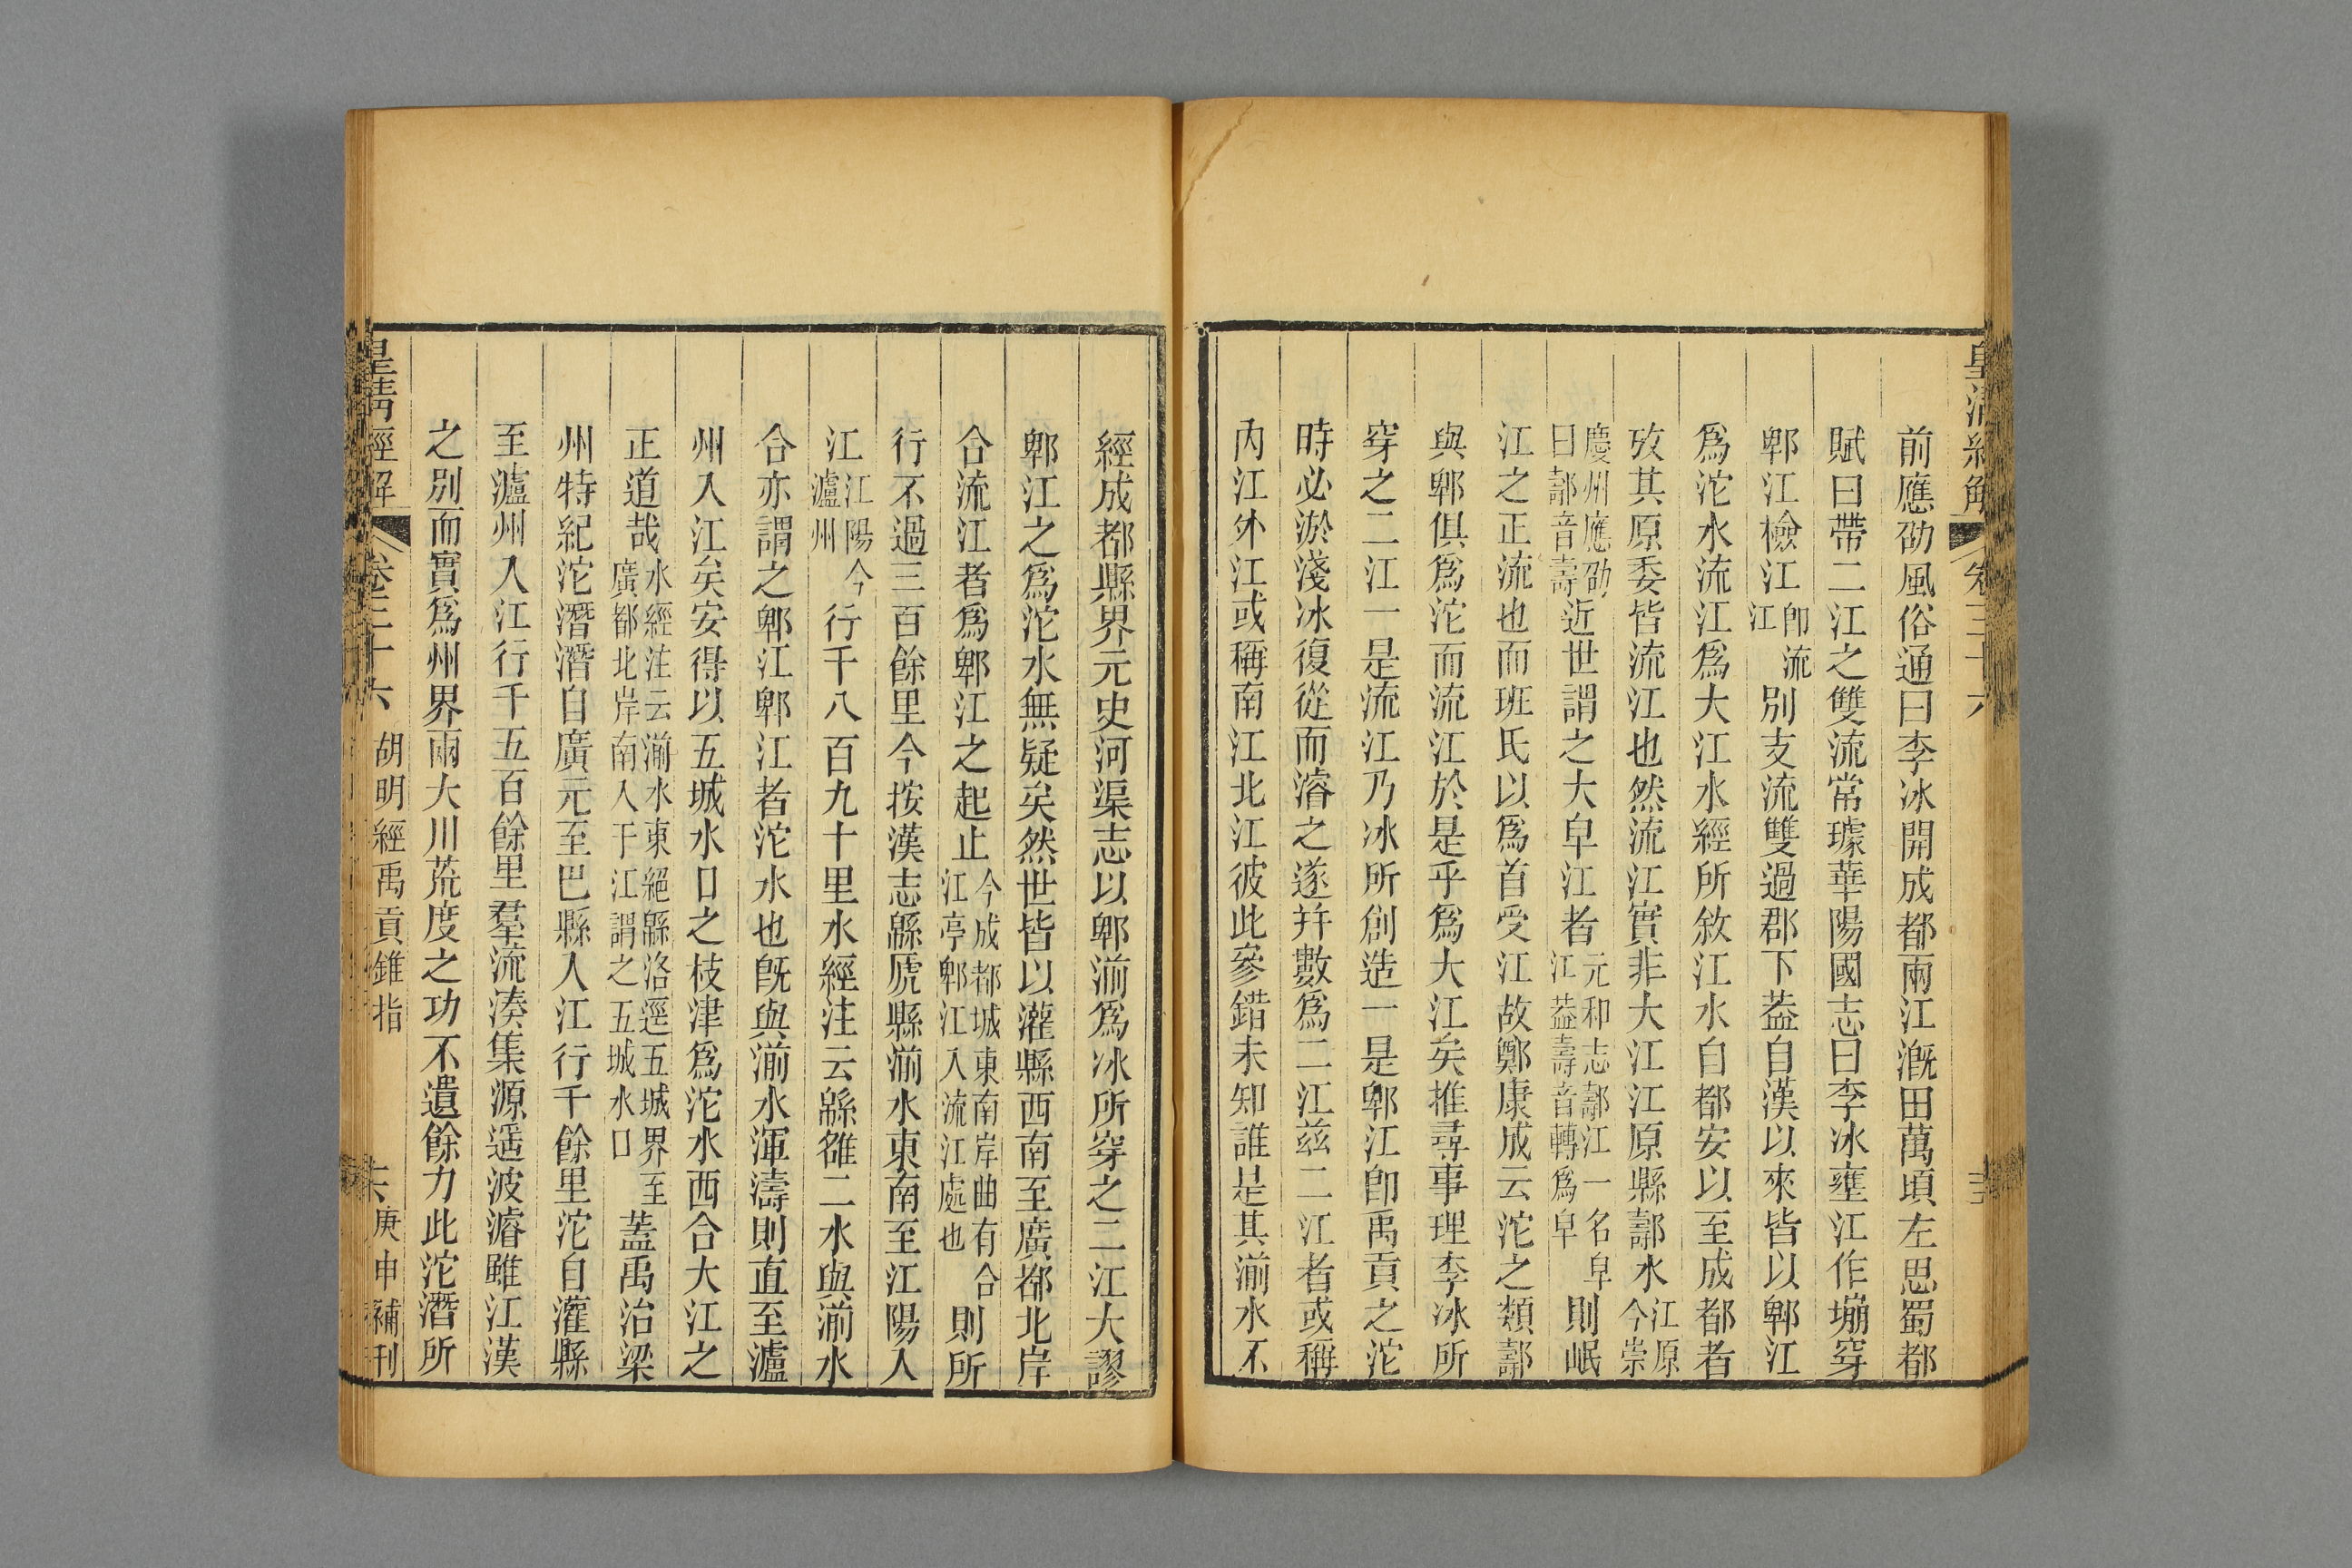 皇清經解 卷三十六
前應劭風俗通曰李冰開成都兩江漑田萬頃左思蜀都
賦曰帶二江之雙流常璩華陽國志曰李冰壅江作堋穿
郫江檢江卽流江別支流雙過郡下葢自漢以來皆以郫江
爲沱水流江爲大江水經所敘江水自都安以至成都者
攷其原委皆流江也然流江實非大江江原縣鄯水江原今崇
慶州應劭曰鄯音壽近世謂之大皁江者元和志鄯江一名皁江葢壽音轉爲皁則岷
江之正流也而班氏以爲首受江故鄭康成云沱之類鄯
與郫俱爲沱而流江於是乎爲大江矣推尋事理李冰所
穿之二江一是流江乃冰所創造一是郫江卽禹貢之沱
時必淤淺冰復從而濬之遂幷數爲二江茲二江者或稱
內江外江或稱南江北江彼此參錯未知誰是其湔水不
經成都縣界元史河渠志以郫湔爲冰所穿之二江大謬
郫江之爲沱水無疑矣然世皆以灌縣西南至廣都北岸
合流江者爲郫江之起止今成都城東南岸曲有合江亭郫江入流江處也則所
行不過三百餘里今按漢志緜虒縣湔水東南至江陽入
江江陽今瀘州行千八百九十里水經注云緜雒二水與湔水
合亦謂之郫江郫江者沱水也旣與湔水渾濤則直至瀘
州入江矣安得以五城水口之枝津爲沱水西合大江之
正道哉水經注云湔水東絕緜洛逕五城界至廣都北岸南入于江謂之五城水口蓋禹治梁
州特紀沱潛潛自廣元至巴縣入江行千餘里沱自灌縣
至瀘州入江行千五百餘里羣流湊集源遥波濬雖江漢
之別而實爲州界兩大川荒度之功不遺餘力此沱潛所
皇清經解 卷三十六 胡明經禹貢錐指 六 庚申補刊